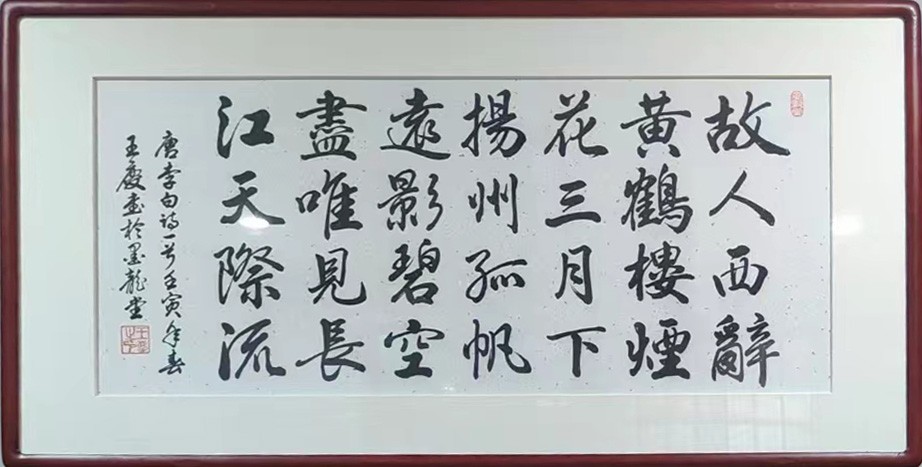 故人西辭
黃鶴樓煙
花三月下
揚州孤帆
遠影碧空
盡唯見長
江天際流
唐李白詩一首壬寅年春
王慶書於墨龍堂